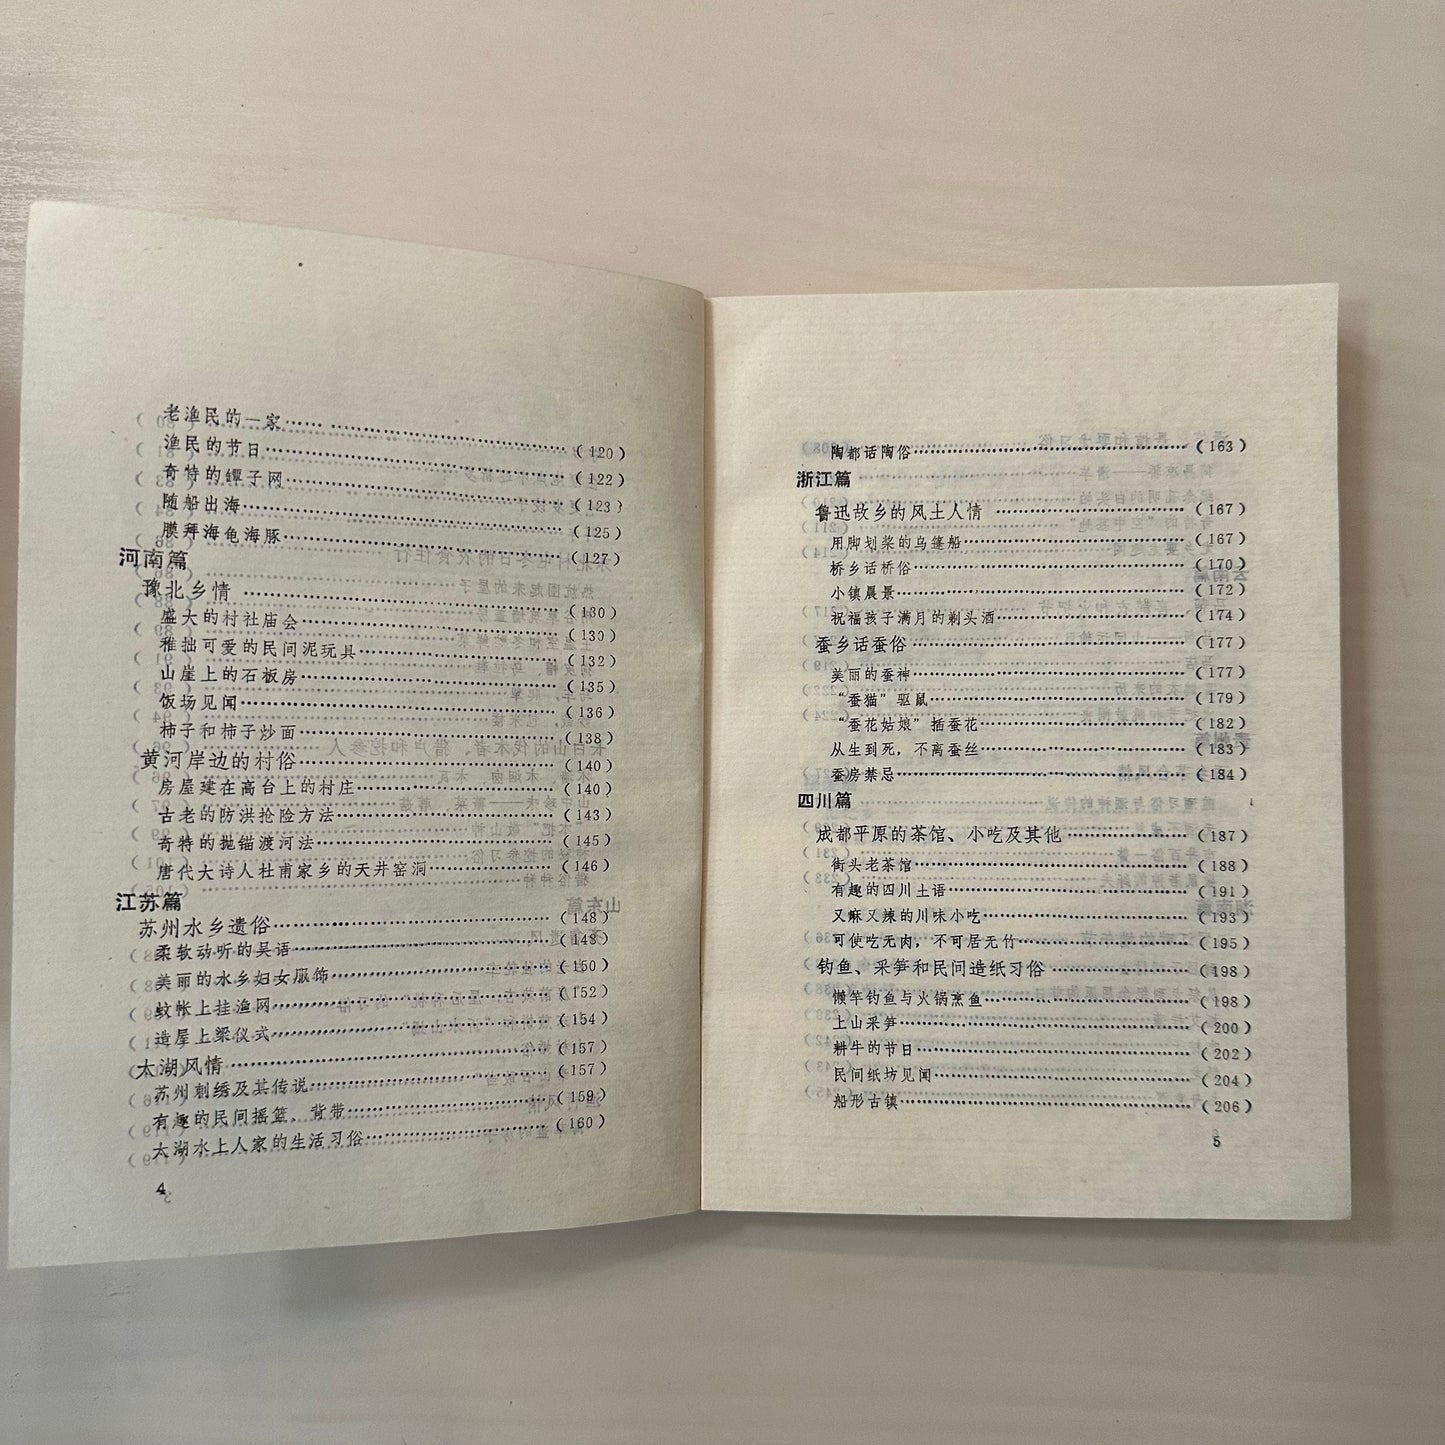 老渔民的一家……………………………(120)
渔民的节日……………………………(122)
奇特的罈子网……………………………(123)
随船出海……………………………(125)
膜拜海龟海豚……………………………(127)
河南篇
豫北乡情……………………………(130)
盛大的村社庙会……………………………(130)
稚拙可爱的民间泥玩具……………………………(132)
山崖上的石板房……………………………(135)
饭场见闻……………………………(136)
柿子和柿子炒面……………………………(138)
黄河岸边的村俗……………………………(140)
房屋建在高台上的村庄……………………………(140)
古老的防洪抢险方法……………………………(143)
奇特的抛锚渡河法……………………………(145)
唐代大诗人杜甫家乡的天井窑洞……………………………(146)
江苏篇
苏州水乡遗俗……………………………(148)
柔软动听的吴语……………………………(148)
美丽的水乡妇女服饰……………………………(150)
蚊帐上挂渔网……………………………(152)
造屋上梁仪式……………………………(154)
太湖风情……………………………(157)
苏州刺绣及其传说……………………………(157)
有趣的民间摇篮、背带……………………………(159)
太湖水上人家的生活习俗……………………………(160)
4
陶都话陶俗……………………………(163)
浙江篇
鲁迅故乡的风土人情……………………………(167)
用脚划桨的乌篷船……………………………(167)
桥乡话桥俗……………………………(170)
小镇晨景……………………………(172)
祝福孩子满月的剃头酒……………………………(174)
蚕乡话蚕俗……………………………(177)
美丽的蚕神……………………………(177)
“蚕猫”驱鼠……………………………(179)
“蚕花姑娘”插蚕花……………………………(182)
从生到死，不离蚕丝……………………………(183)
蚕房禁忌……………………………(184)
四川篇
成都平原的茶馆、小吃及其他……………………………(187)
街头老茶馆……………………………(188)
有趣的四川土语……………………………(191)
又麻又辣的川味小吃……………………………(193)
可使吃无肉，不可居无竹……………………………(195)
钓鱼、采笋和民间造纸习俗……………………………(198)
懒竿钓鱼与火锅烹鱼……………………………(198)
上山采笋……………………………(200)
耕牛的节日……………………………(202)
民间纸坊见闻……………………………(204)
船形古镇……………………………(206)
5